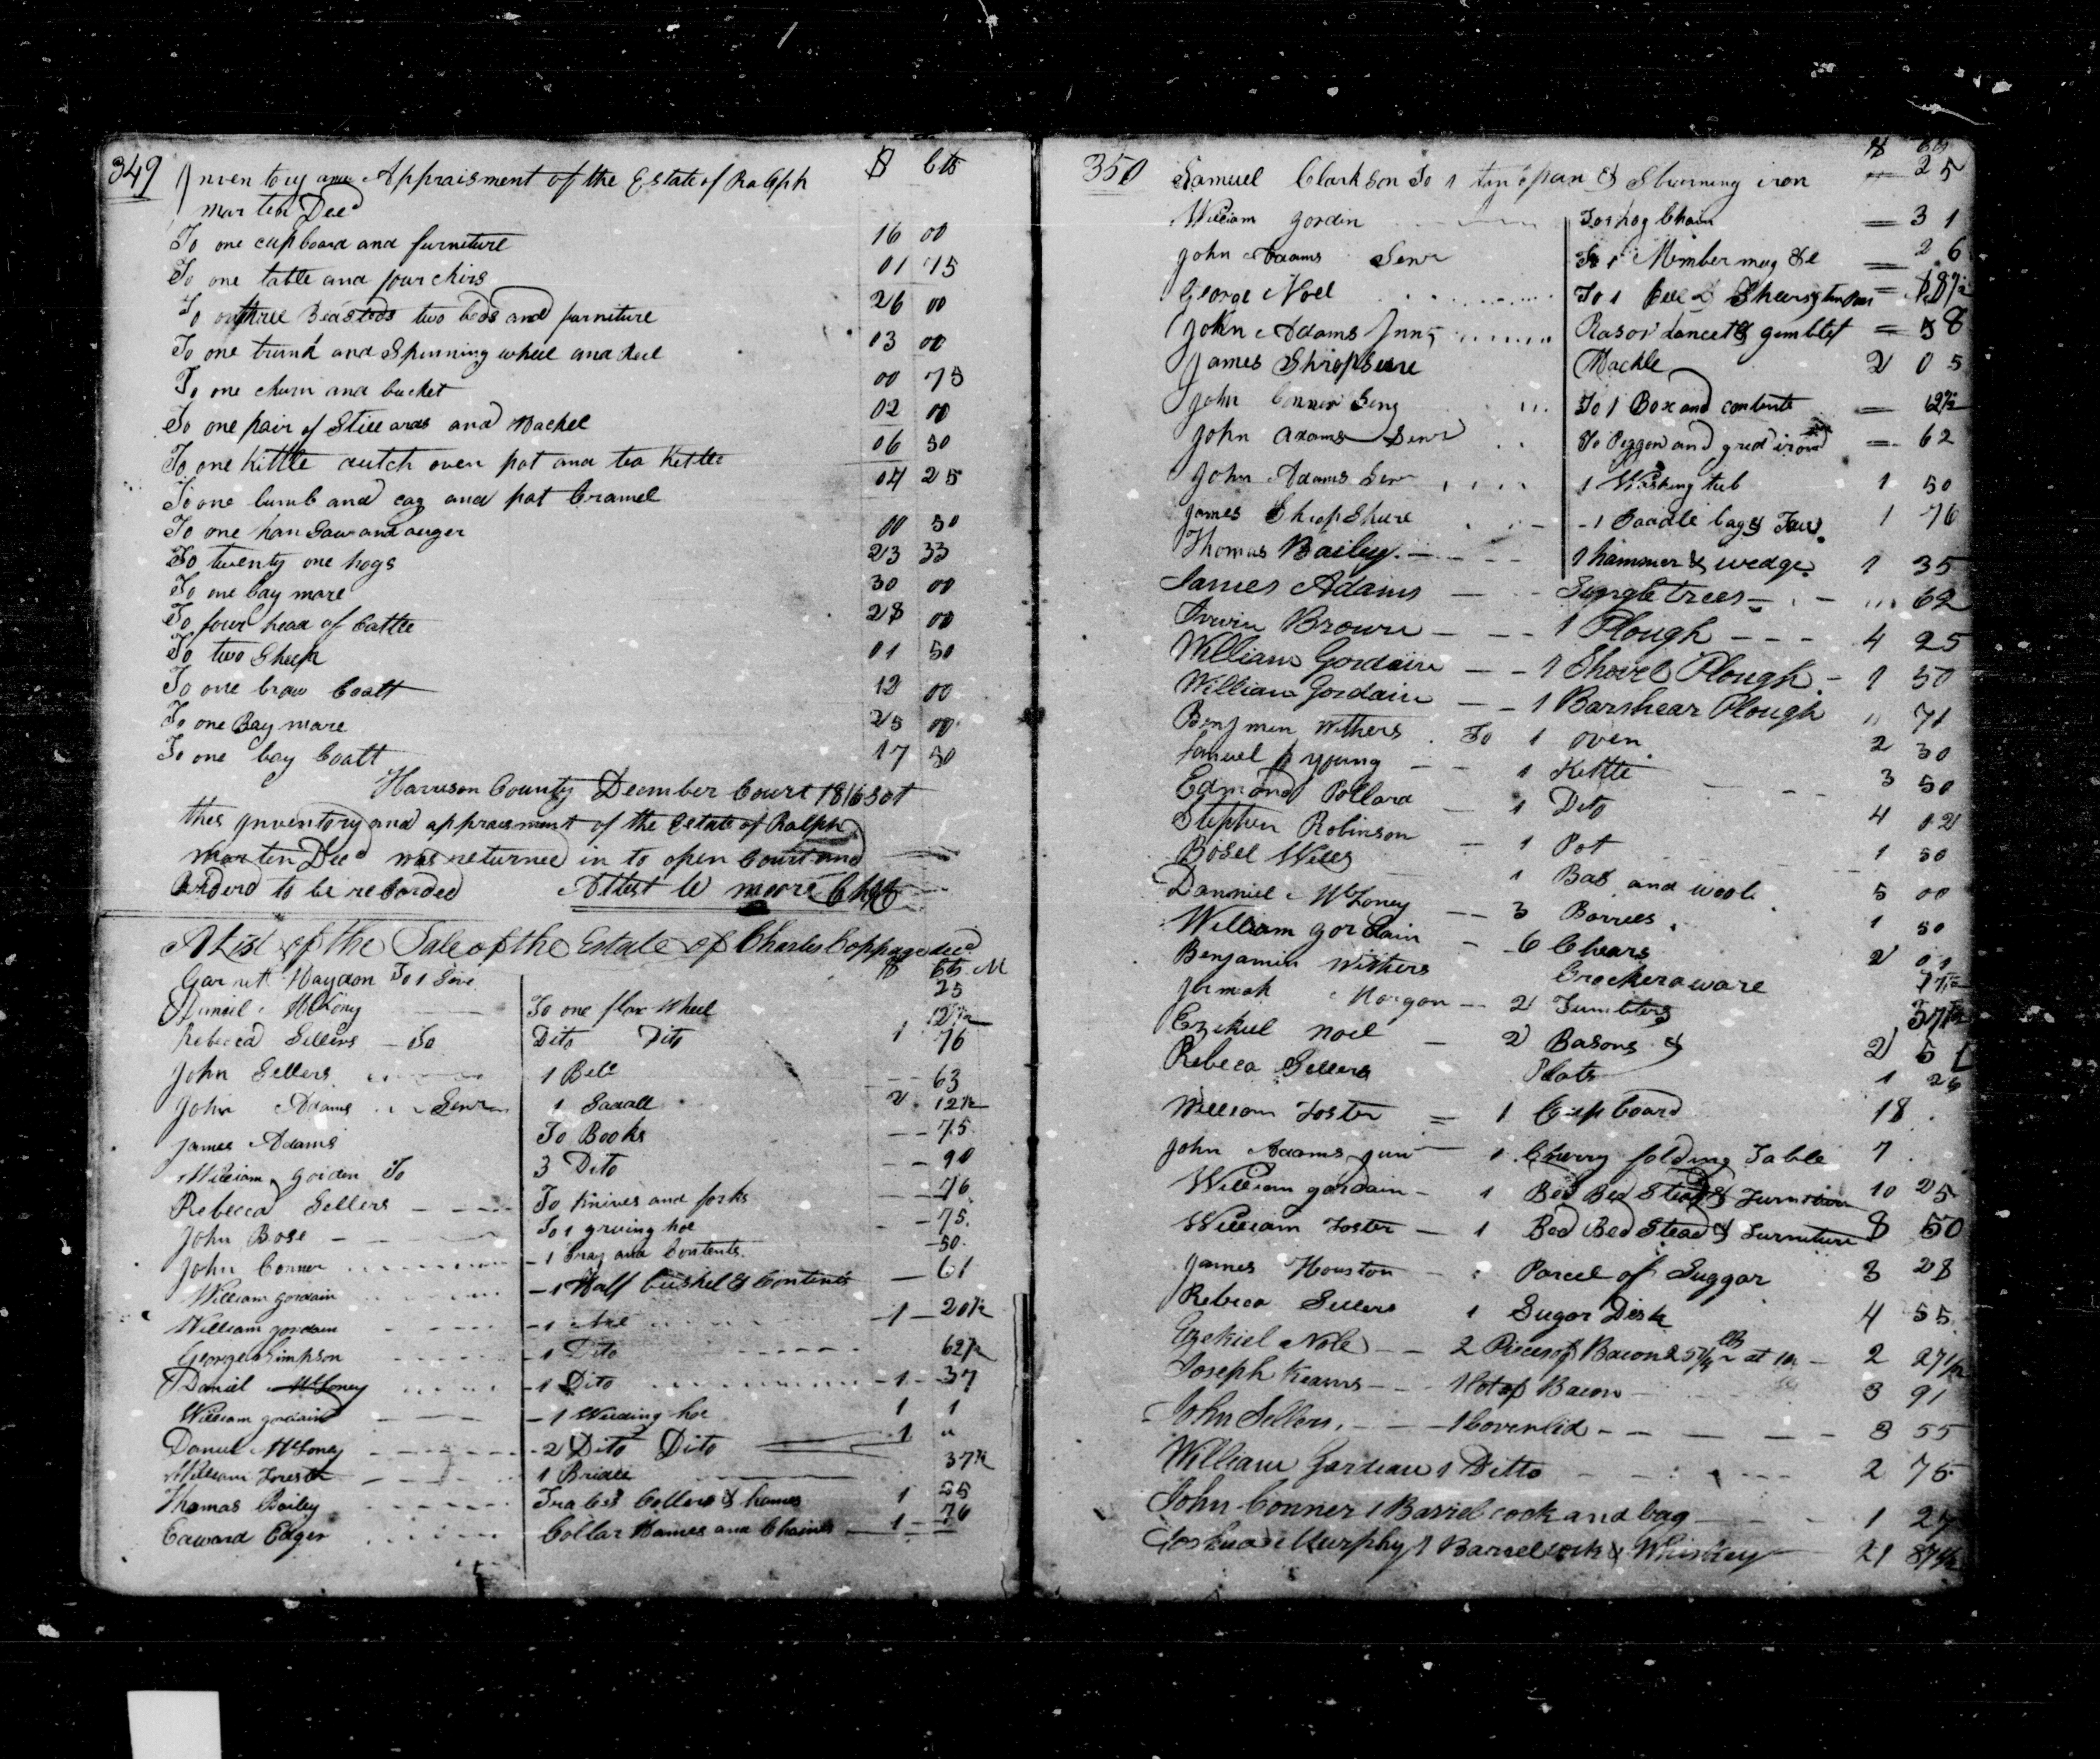 349 Inventory and Appraisment of the Estate of Ralph $ Cts
Marten Decd
To one cupboard and furniture 16 00
To one table and four chirs 01 75
To three Beasteds two beds and furniture 26 00
To one trunk and Spinning wheel and Reel 03 00
To one churn and bucket 00 75
To one pair of Stillards and Hackel 02 00
To one Kittle dutch oven pot and tea Kettle 06 50
To one and cag and pot 04 25
To one han Saw and auger 00 50
To twenty one hogs 23 33
To one bay mare 30 00
To four head of Cattle 28 00
To two Sheep 01 50
To one brow Coalt 12 00
To one Bay mare 25 00
To one bay Coalt 17 50
Harrison County December Court 1816 Sct
this Inventory and appraisment of the Estate of Ralph
Marten Decd was returned in to open Court and
Orderd to be recorded Attest W moore
A List of the Sale of the Estate of Charles Coppage decd
$ Cts M
Garnet Haydon To 1 25
Daniel McLoney To one flax Wheel 12 1/2
Rebecca Sellers To Dito Dito 1 76
John Sellers 1 Bell 63
John Adams Senr 1 2 12 1/2
James Adams To Books 75
William gordin To 3 Dito 90
Rebecca Sellers To Knives and forks 76
John Bose To 1 hoe 75
John Conner 1 Tray and Contents 50
William gordain 1 Half bushel & Contents 61
William gordain 1 Axe 1 20 1/2
George Simpson 1 Dito 62 1/2
Daniel McLoney 1 Dito 1 37
William gordain 1 Weeding hoe 1 1
Daniel McLoney 2 Dito Dito 1 "
William 1 Bridle 37 1/2
Thomas Bailey Traces Collers & hames 1 25
Edward Edger Collar Hames and Chaines 1 76
$ Cts
350 Samuel Clarkson To 1 tin pan & iron 25
William gordin To 1 hog Chain 31
John Adams Senr To 1 mug &c 26
George Noel To 1 & Shears 18 1/2
John Adams Jun Rasor lancet & gimblet 58
James Shropseire Hackle 2 05
John Conner To 1 Box and contents 62 1/2
John Adams Senr To Peggon and grid irond 62
John Adams Senr 1 Washing tub 1 50
James Shropshire 1 Saddle bags 1 76
Thomas Bailey 1 hammer & wedge 1 35
James Adams Singletrees 62
Irvin Brown 1 Plough 4 25
William Gordain 1 Shovel Plough 1 50
William Gordain 1 Barshear Plough " 71
Benjmen Withers To 1 oven 2 30
Samuel Young 1 Kettle 3 50
Edmond Pollard 1 Dito 4 02
Stephen Robinson 1 Pot 1 50
Bosel Wells 1 Bas and wool 5 00
Danniel McLoney 3 Barrels 1 50
William gordain 6 Chears 2 01
Benjamen Withers Crockeraware
Jermiah Morgan 2 Tumblers 37 1/2
Ezekiel Noel 2 Basons & 2 51
Rebeca Sellers Plats 1 26
William Foster 1 Cupboard 18
John Adams jun 1 Cherry folding Table 7
William gordain 1 Bed Bed Stead & Furniture 10 25
William Foster 1 Bed Bed Stead & Furniture 8 50
James Houston Parcel of Suggar 3 28
Rebeca Sellers 1 Sugar Desk 4 55
Ezekiel Nole 2 Pieces of Bacon 25 1/4 lb at 2 27 1/2
Joseph Kearns 1 lot of Bacon 3 91
John Sellers 1 Coverlid 3 55
William Gordeau 1 Ditto 2 75
John Conner 1 Barrel cock and bag 1 27
Joshua Murphy 1 Barrel cock & Whiskey 21 87 1/2